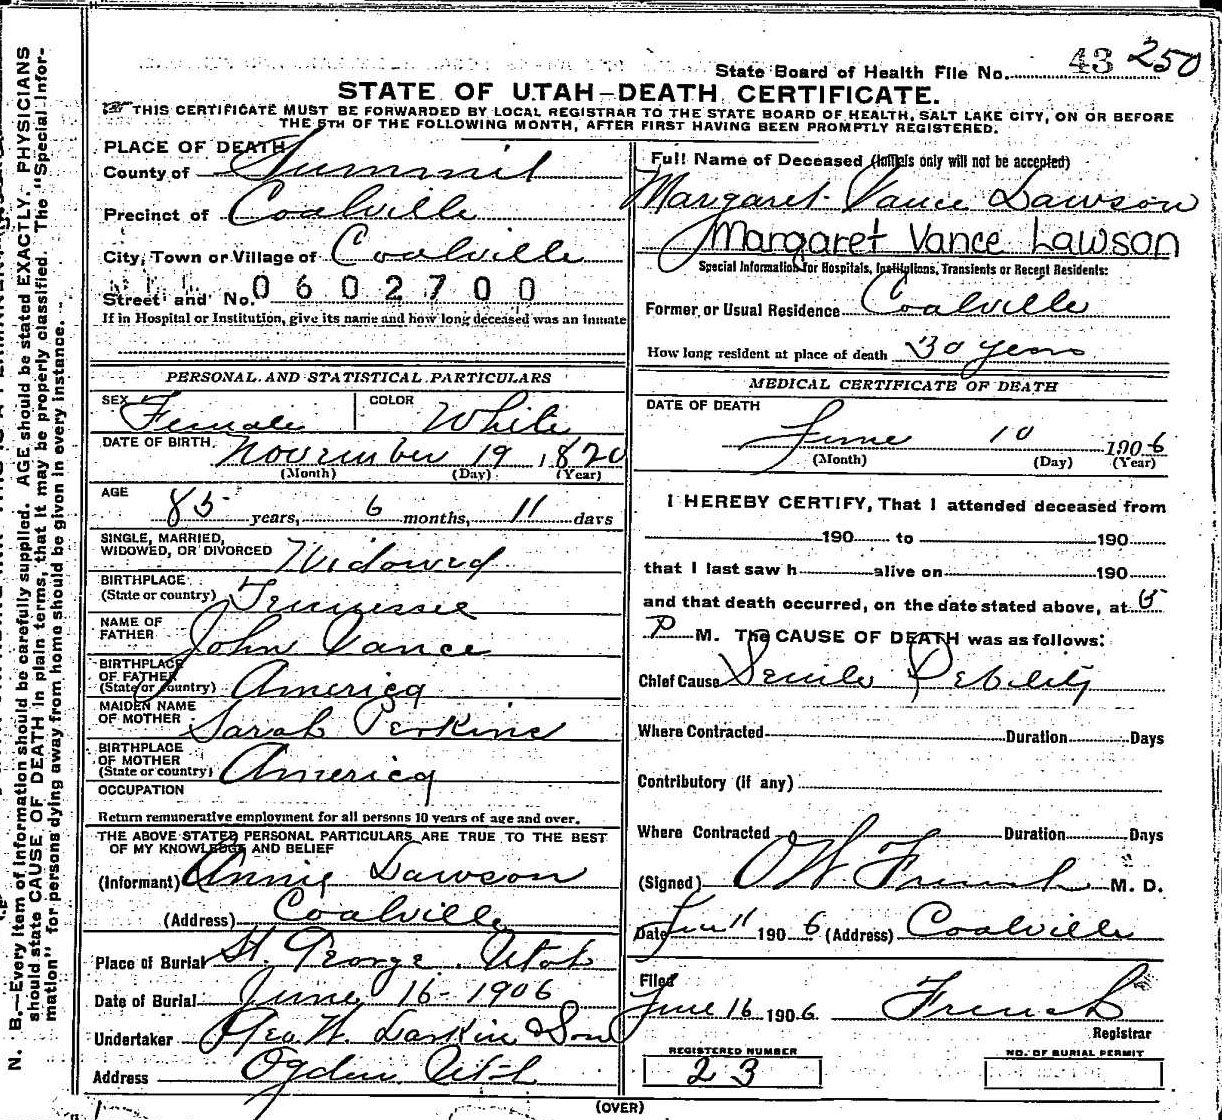 State Board of Health File No. 43 250
STATE OF UTAH—DEATH CERTIFICATE.
THIS CERTIFICATE MUST BE FORWARDED BY LOCAL REGISTRAR TO THE STATE BOARD OF HEALTH, SALT LAKE CITY, ON OR BEFORE
THE 5TH OF THE FOLLOWING MONTH, AFTER FIRST HAVING BEEN PROMPTLY REGISTERED.
PLACE OF DEATH
County of Summit
Precinct of Coalville
City, Town or Village of Coalville
Street and No. 0602700
If in Hospital or Institution, give its name and how long deceased was an inmate
PERSONAL AND STATISTICAL PARTICULARS
SEX Female COLOR White
DATE OF BIRTH November 19, 1820
(Month) (Day) (Year)
AGE
85 years, 6 months, 11 days
SINGLE, MARRIED,
WIDOWED, OR DIVORCED Widowed
BIRTHPLACE
(State or country) Tennessee
NAME OF
FATHER John Vance
BIRTHPLACE
OF FATHER
(State or country) America
MAIDEN NAME
OF MOTHER Sarah Perkins
BIRTHPLACE
OF MOTHER
(State or country) America
OCCUPATION
Return remunerative employment for all persons 10 years of age and over.
THE ABOVE STATED PERSONAL PARTICULARS ARE TRUE TO THE BEST
OF MY KNOWLEDGE AND BELIEF
(Informant) Annie Lawson
(Address) Coalville
Place of Burial St. George, Utah
Date of Burial June 16-1906
Undertaker Geo. W. Larkin & Son
Address Ogden Utah
Full Name of Deceased (Initials only will not be accepted)
Margaret Vance Lawson
Margaret Vance Lawson
Special Information for Hospitals, Institutions, Transients or Recent Residents:
Former or Usual Residence Coalville
How long resident at place of death 30 years
MEDICAL CERTIFICATE OF DEATH
DATE OF DEATH
June 10 1906
(Month) (Day) (Year)
I HEREBY CERTIFY, That I attended deceased from
190 to 190
that I last saw h alive on 190
and that death occurred, on the date stated above, at 5
P M. The CAUSE OF DEATH was as follows:
Chief Cause Senile Debility
Where Contracted Duration Days
Contributory (if any)
Where Contracted Duration Days
(Signed) O W French M. D.
Date June 11 1906 (Address) Coalville
Filed
June 16 1906 French
Registrar
REGISTERED NUMBER
23
NO. OF BURIAL PERMIT
(OVER)
N. B.—Every item of information should be carefully supplied. AGE should be stated EXACTLY. PHYSICIANS
should state CAUSE OF DEATH in plain terms, that it may be properly classified. The "Special Infor-
mation" for persons dying away from home should be given in every instance.